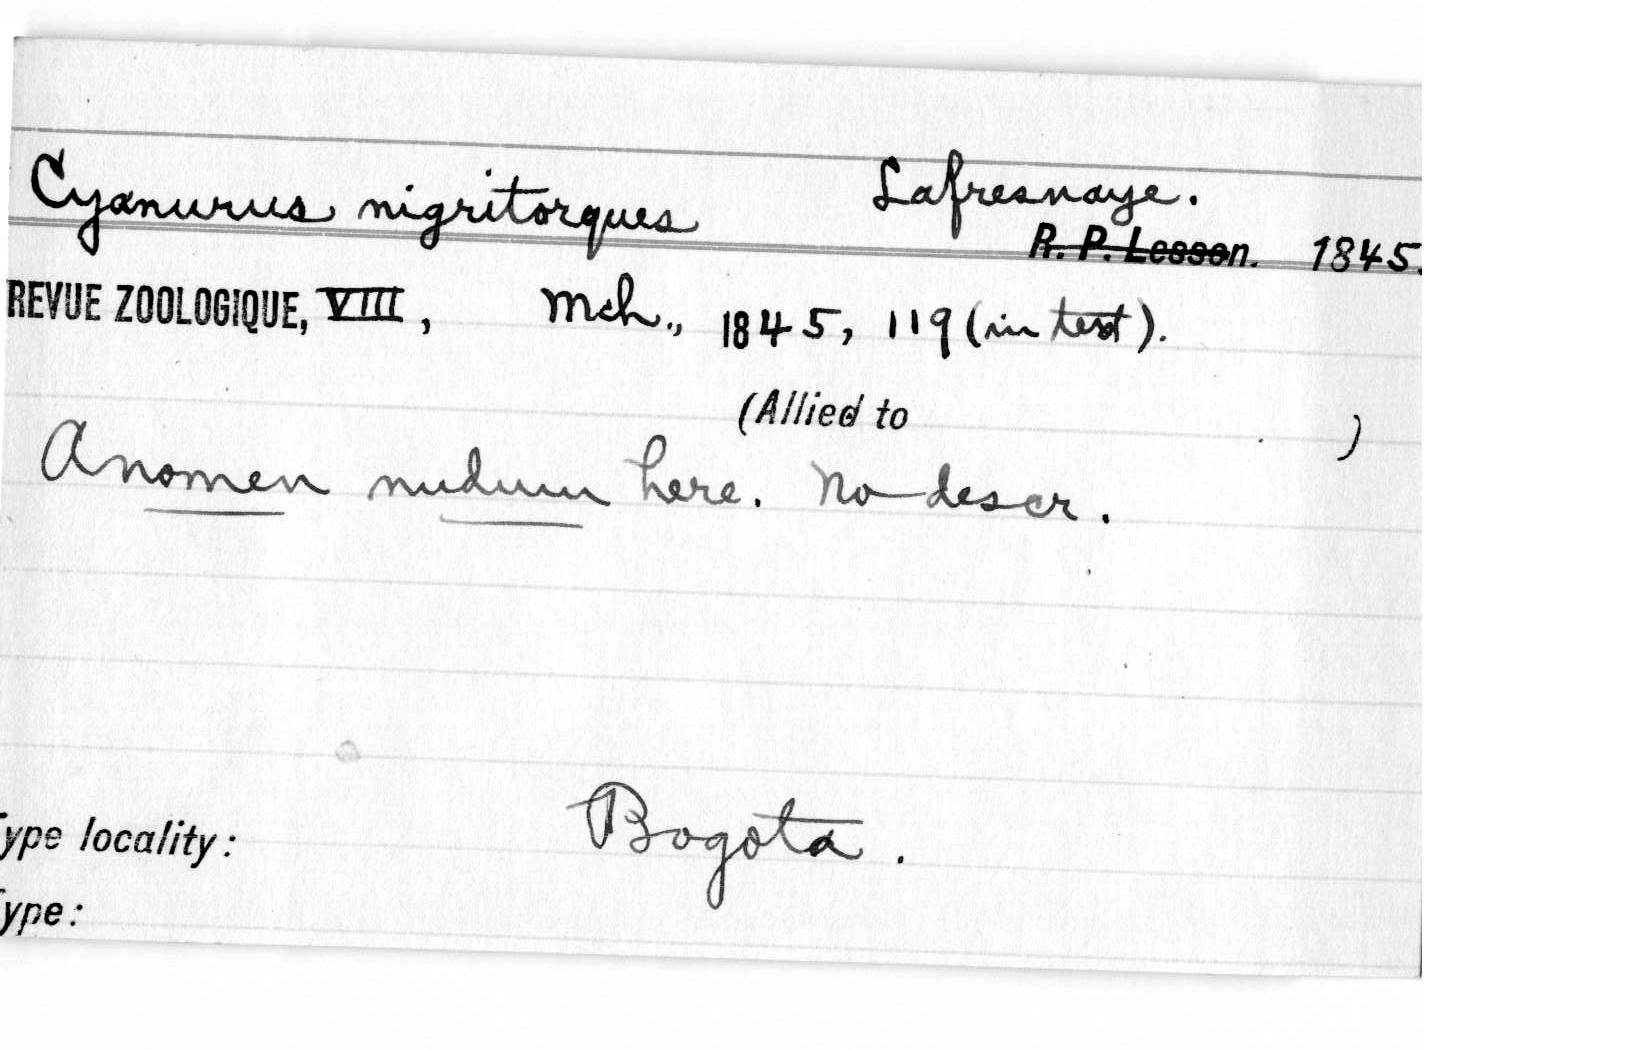 Cyanurus nigritorques Lafresnaye.
R. P. Lesson. 1845.
REVUE ZOOLOGIQUE, VIII, Mch., 1845, 119 (in text).
(Allied to )
A nomen nudum here. No descr.
Type locality: Bogota.
Type: